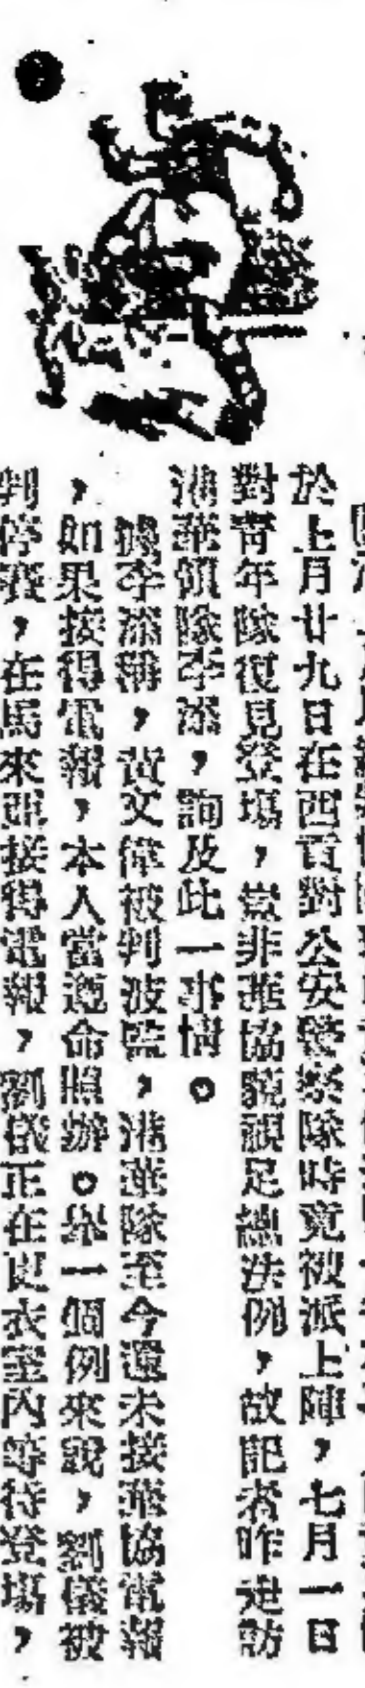 於上月廿九日在西貢對公安警察隊時竟被派上陣，七月一日
對青年隊復見登場，豈非華協藐視足總法例，故記者昨走訪
港華領隊李添，詢及此一事情。
據李添稱，黃文偉被判波監，港華隊至今還未接華協電報
，如果接得電報，本人當遵命照辦。舉一個例來說，劉儀被
判停賽，在馬來亞接得電報，劉儀正在更衣室內等待登場，